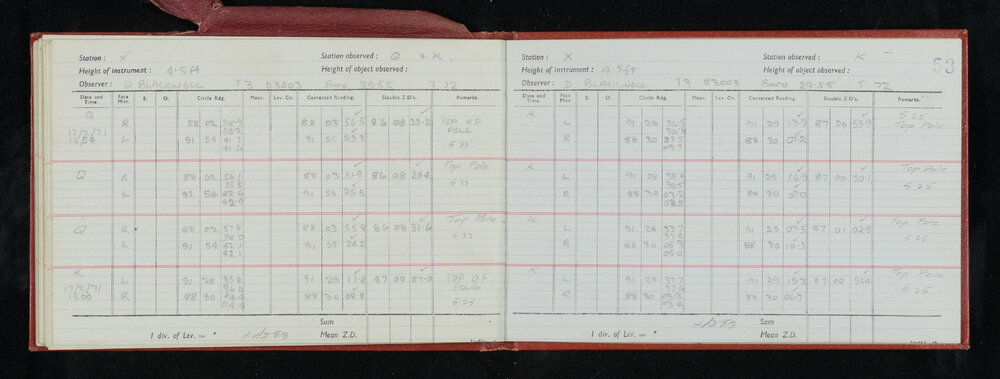 Station : X Station observed : Q & K
Height of instrument : 4.5ft Height of object observed :
Observer : D BLACKWELL T3 83003 Baro 29.55 T 72
Date and Time. Face Micr. E. O. Circle Rdg. Mean. Lev. Cn. Corrected Reading. Double Z.D's. Remarks.
Q R 88 02 58.3 88 03 56.5 86 08 33.2 TOP OF
17/2/71 58.2 POLE
1454 L 91 54 41.7 91 55 23.3 5.33
41.6
Q R 88 02 56.1 88 03 51.9 86 08 26.4 Top Pole
55.8
L 91 54 42.6 91 55 25.5 5.33
42.9
Q R 88 02 57.8 88 03 55.8 86 08 31.6 Top Pole
58.0
L 91 54 42.1 91 55 24.2 5.33
42.1
K L 91 28 35.8 91 29 11.8 87 00 57.0 TOP OF
17/2/71 36.0 POLE
1500 R 88 30 04.4 88 30 08.8 5.25
04.4
Sum
1 div. of Lev. = " Mean Z.D.
Station : X K
53
Height of instrument : 4.5ft Height of object observed :
Observer : D BLACKWELL T3 83003 Baro 29.55 T 72
Date and Time. Face Micr. E. O. Circle Rdg. Mean. Lev. Cn. Corrected Reading. Double Z.D's. Remarks.
K 5.25
L 91 28 36.5 91 29 13.3 87 00 53.9 Top Pole
36.8
R 88 30 88 30 07.2
03.7
K L 91 28 38.4 91 29 16.9 87 00 50.1 Top Pole
38.5
R 88 30 03.2 88 30 07.0 5.25
03.8
K L 91 28 33.7 91 29 07.5 87 01 02.8 Top Pole
33.8
R 88 30 05.3 88 30 10.3 5.25
05.0
K L 91 28 37.7 91 29 15.3 87 00 51.4 Top Pole
37.6
R 88 30 03.3 88 30 06.7 5.25
03.4
Sum
1 div. of Lev. = " Mean Z.D.